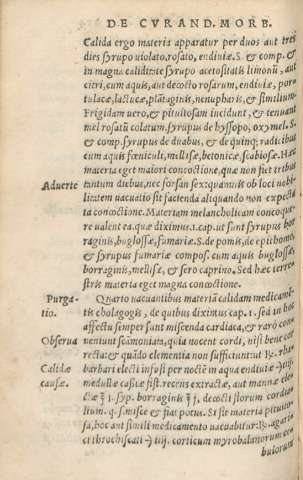 DE CVRAND. MORB.
Calida ergo materia apparatur per duos aut tres
dies syrupo uiolato, rosato, endiuiæ. S. & comp. &
in magna caliditate syrupo acetositatis limonũ, aut
citri, cum aquis, aut decocto rosarum, endiuiæ, por
tulacæ, lactucæ, plãtaginis, nenupharis, & similium.
Frigidam uero, & pituitosam incidunt, & tenuant
mel rosatũ colatum. syrupus de hyssopo, oxymel. S.
& comp. syrupus de duabus, & de quinq; radicibus
cum aquis fœniculi, melissæ, betonicæ, scabiosæ. Hæc
materia eget maiori concoctione, quæ non fiet tribus
Aduerte tantum diebus, nec forsan sex: quamuis ob loci nobi
litatem uacuatio sit facienda aliquando non expecta
ta concoctione. Materiam melancholicam concoque
re ualent ea. quæ diximus. 1. cap. ut sunt syrupus bor
raginis, buglossæ, fumariæ. S. de pomis, de epithomo
& syrupus fumariæ compos. cum aquis buglossæ,
borraginis, melissæ, & sero caprino. Sed hæc terre
stris materia eget magna concoctione.
Purga Quarto uacuantibus materiã calidam medicamē
tio. tis cholagogis, de quibus diximus cap. 1. sed in hoc
affectu semper sunt miscenda cardiaca, & raro conue
Obserua niunt scamoniam, quia nocent cordi, nisi bene cor
recta: & quãdo elementia non sufficiunt ut
Calidæ barbari electi infusi per noctē in aqua endiuiæ
causæ. medullæ cassiæ fist. recens extractæ, aut mannæ
syp. borraginis decocti florum cordia
lium. q. s. misce & fiat potus. Si sit materia pituito
sa, hoc aut simili medicamento uacuabitur: agarici
ct throchiscati corticum myrobalanorum
butorum